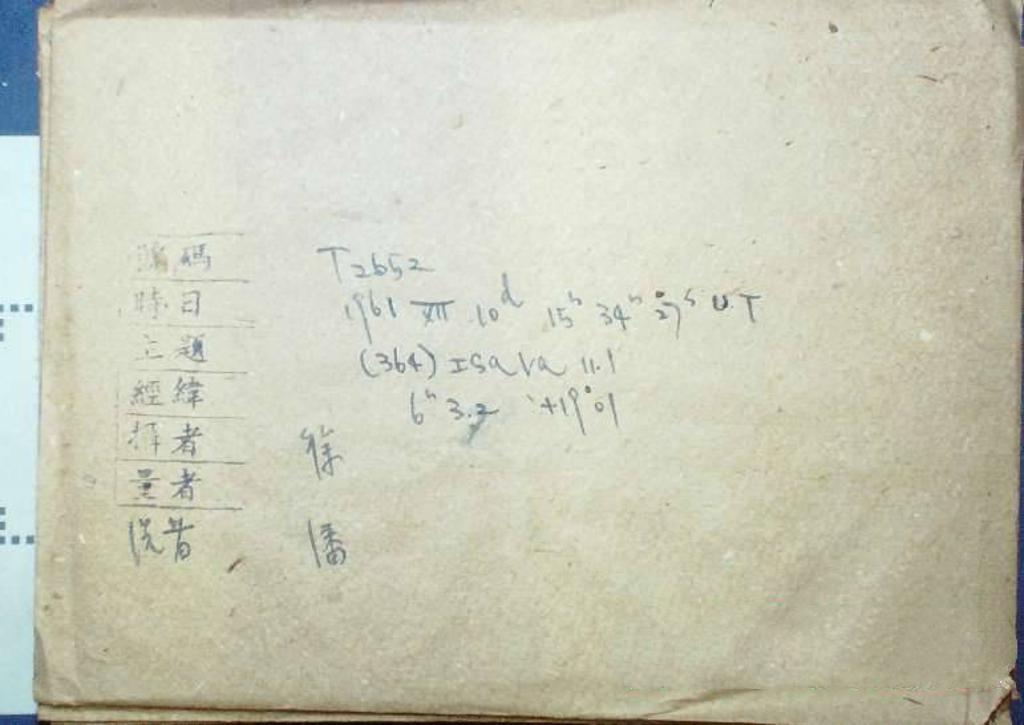 號碼 T2652
時日 1961 XII 10d 15h 34m 27s U.T
主題 (364) Isara 11.1
經緯 6h 3.2 +19°01
擇者 徐
量者
洗者 潘